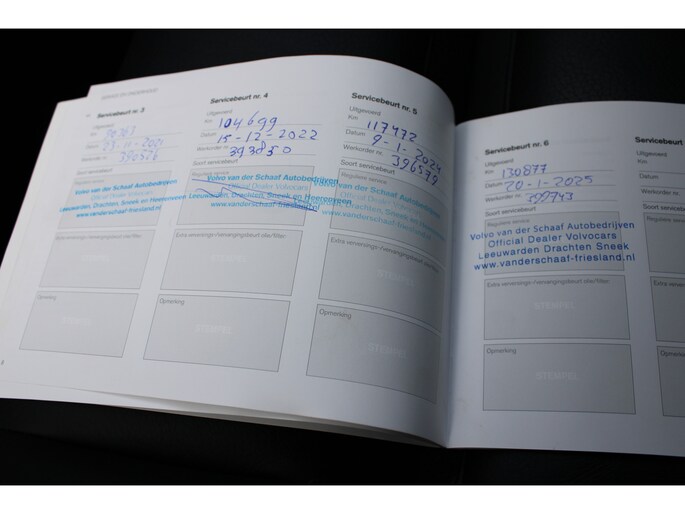 SERVICE EN ONDERHOUD
Servicebeurt nr. 3
Uitgevoerd
Km
Datum 23-11-2021
Werkorder nr. 390526
Soort servicebeurt
Reguliere service
Volvo van der Schaaf Autobedrijven
Official Dealer Volvocars
Leeuwarden, Drachten, Sneek en Heerenveen
www.vanderschaaf-friesland.nl
Opmerking
STEMPEL
Servicebeurt nr. 4
Uitgevoerd
Km 104699
Datum 15-12-2022
Werkorder nr. 393850
Soort servicebeurt
Reguliere service
Volvo van der Schaaf Autobedrijven
Official Dealer Volvocars
Leeuwarden, Drachten, Sneek en Heerenveen
www.vanderschaaf-friesland.nl
Extra verversings-/vervangingsbeurt olie/filter:
Opmerking
STEMPEL
Servicebeurt nr. 5
Uitgevoerd
Km 117472
Datum 9-1-2024
Werkorder nr. 396579
Soort servicebeurt
Reguliere service
Volvo van der Schaaf Autobedrijven
Official Dealer Volvocars
Leeuwarden, Drachten, Sneek en Heerenveen
www.vanderschaaf-friesland.nl
Extra verversings-/vervangingsbeurt olie/filter:
Opmerking
STEMPEL
Servicebeurt nr. 6
Uitgevoerd
Km 130877
Datum 20-1-2025
Werkorder nr.
Soort servicebeurt
Reguliere service
Volvo van der Schaaf Autobedrijven
Official Dealer Volvocars
Leeuwarden Drachten Sneek
www.vanderschaaf-friesland.nl
Extra verversings-/vervangingsbeurt olie/filter:
STEMPEL
Opmerking
STEMPEL
Servicebeurt
Uitgevoerd
Km
Datum
Werkorder nr.
Soort service
Reguliere
Extra
Opmerking